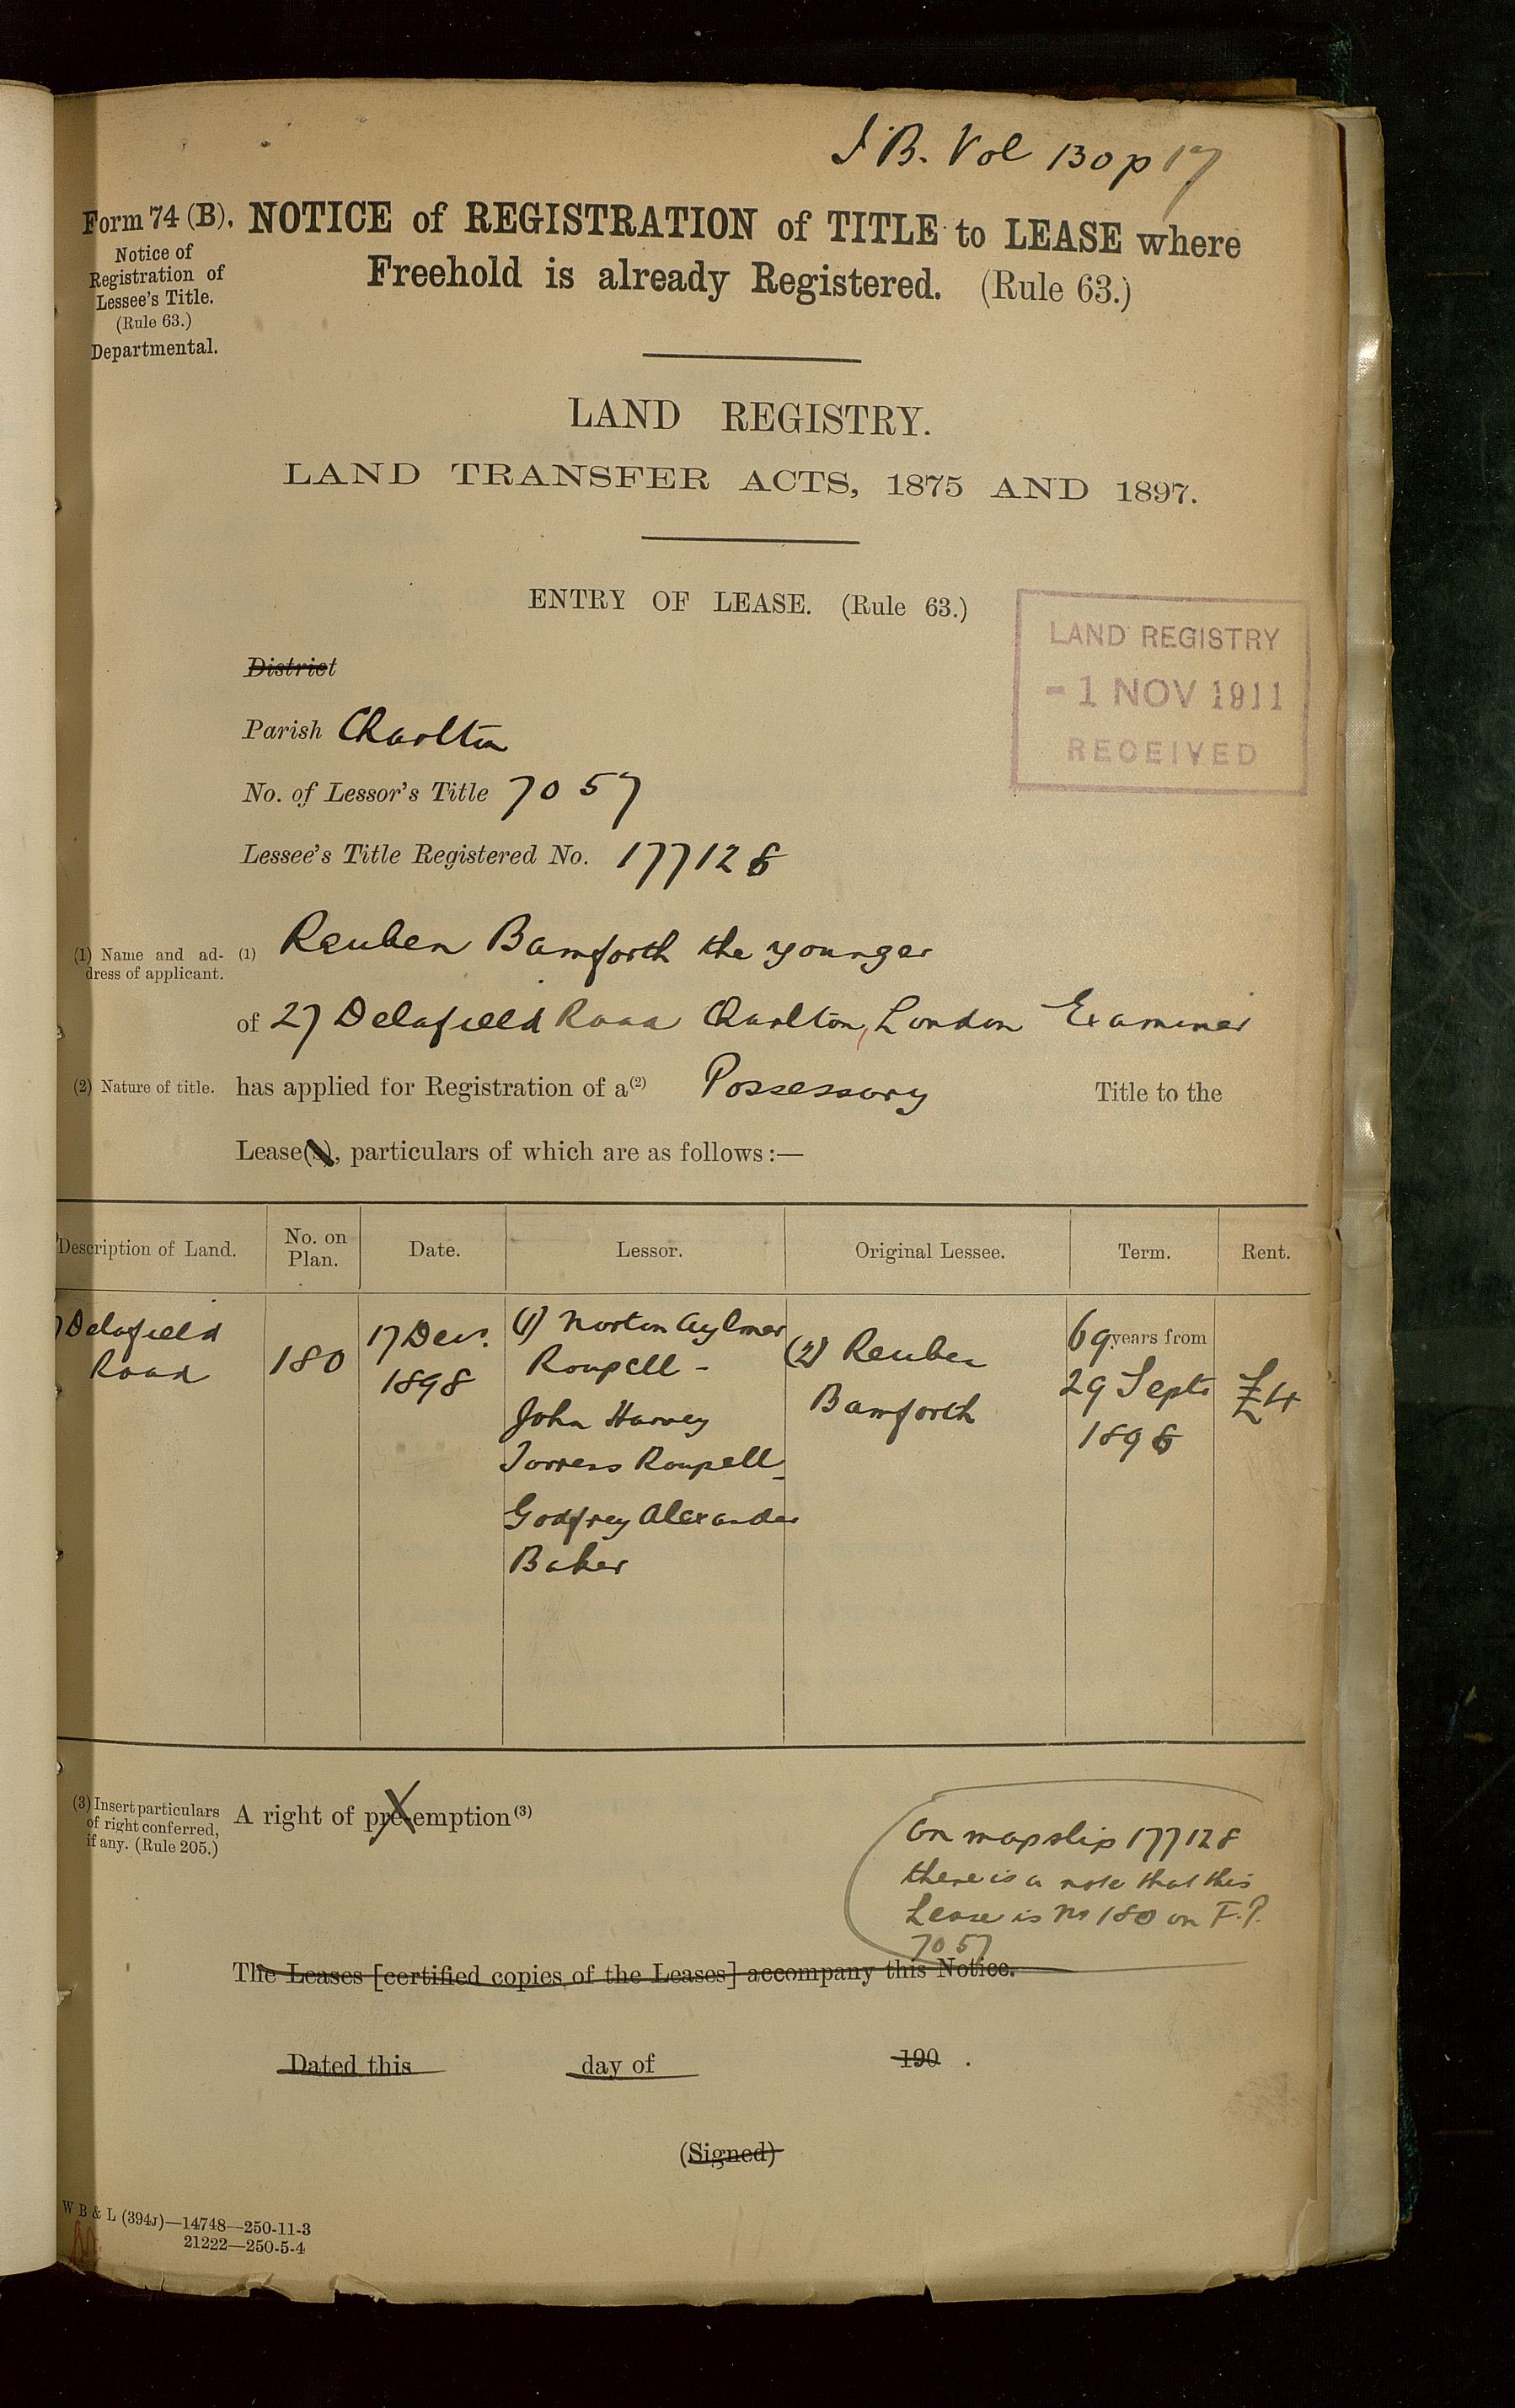 I B. Vol 130 p 17
Form 74 (B). NOTICE of REGISTRATION of TITLE to LEASE where
Freehold is already Registered. (Rule 63.)
Notice of
Registration of
Lessee's Title.
(Rule 63.)
Departmental.
LAND REGISTRY.
LAND TRANSFER ACTS, 1875 AND 1897.
ENTRY OF LEASE. (Rule 63.)
LAND REGISTRY
- 1 NOV 1911
RECEIVED
District
Parish Charlton
No. of Lessor's Title 7057
Lessee's Title Registered No. 177128
(1) Name and ad-
dress of applicant.
(1) Reuben Bamforth the younger
of 27 Delafield Road Charlton, London Examiner
(2) Nature of title. has applied for Registration of a (2) Possessory Title to the
Lease(s), particulars of which are as follows :—
Description of Land. No. on Plan. Date. Lessor. Original Lessee. Term. Rent.
7 Delafield
Road
180
17 Decr.
1898
(1) Norton Aylmer
Roupell -
John Harvey
Torrens Roupell -
Godfrey Alexander
Baker
(2) Reuben
Bamforth
69 years from
29 Septr
1898
£4
(3) Insert particulars
of right conferred,
if any. (Rule 205.)
A right of pre-emption (3)
On mapslip 177128
there is a note that this
Lease is No 180 on F.P.
7057
The Leases [certified copies of the Leases] accompany this Notice.
Dated this day of 190 .
(Signed)
W B & L (394J)—14748—250-11-3
21222—250-5-4